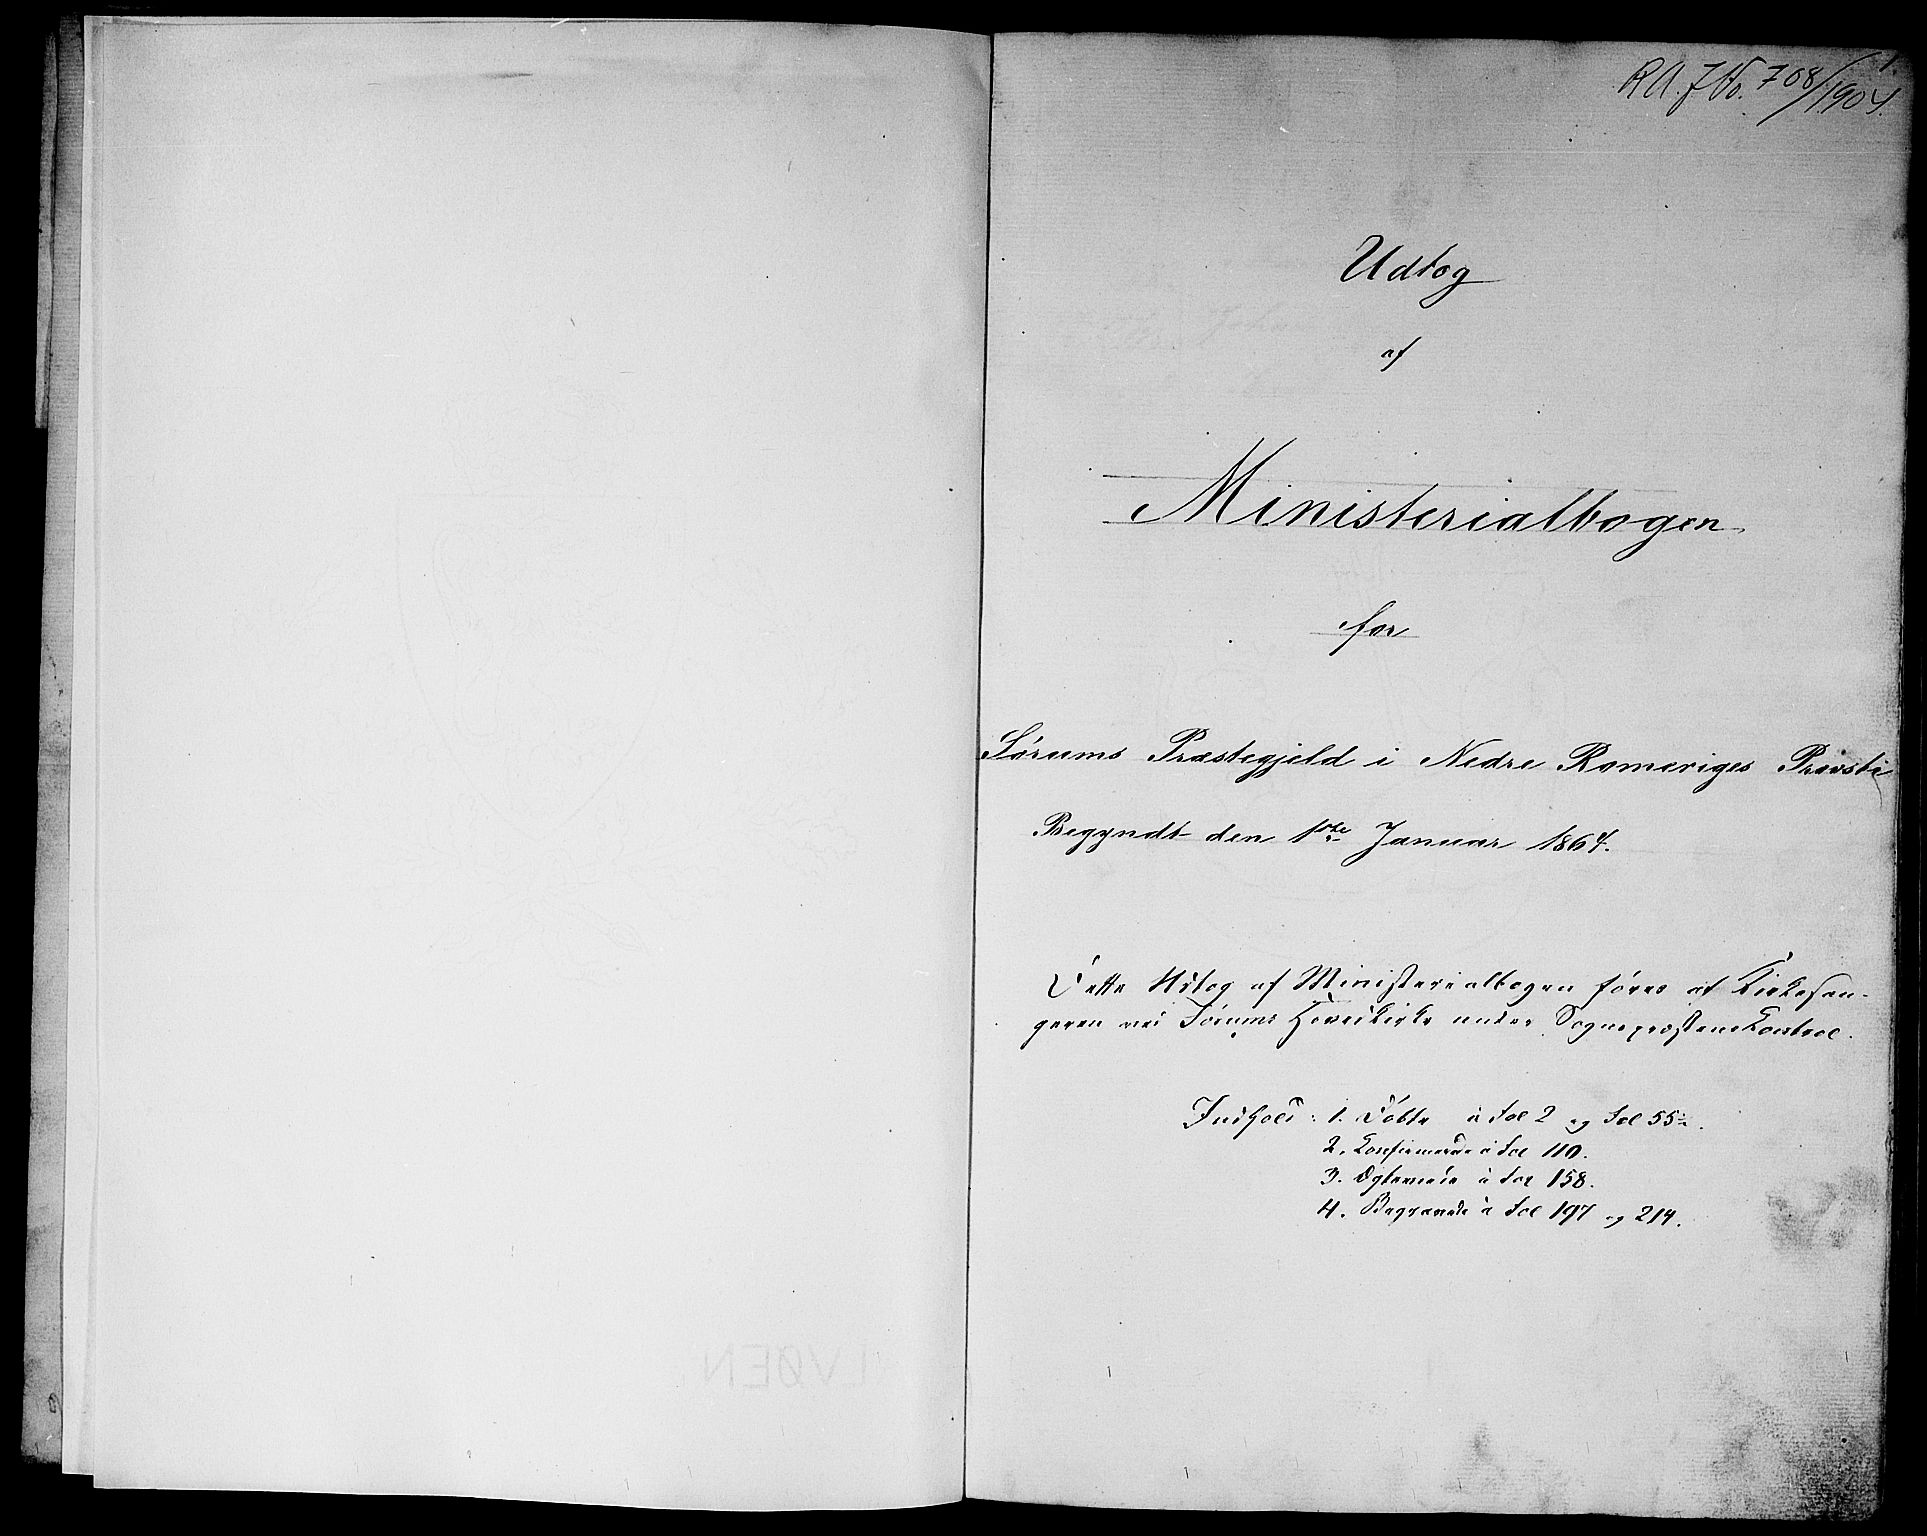 1.
R.A. J.No. 708/1904.
Udtog
af
Ministerialbogen
for
Sörums Præstegjeld i Nedre Romeriges Provsti
Begyndt den 1ste Januar 1864.
Dette Udtog af Ministerialbogen föres af Kirkesan-
geren ved Sörums Hovedkirke under Sognepræstens Kontrol.
Indhold: 1. Döbte à Fol 2 og Fol 55.
2. Konfirmerede à Fol 110.
3. Egteviede à Fol 158.
4. Begravede à Fol 197 og 214.
ALVØEN